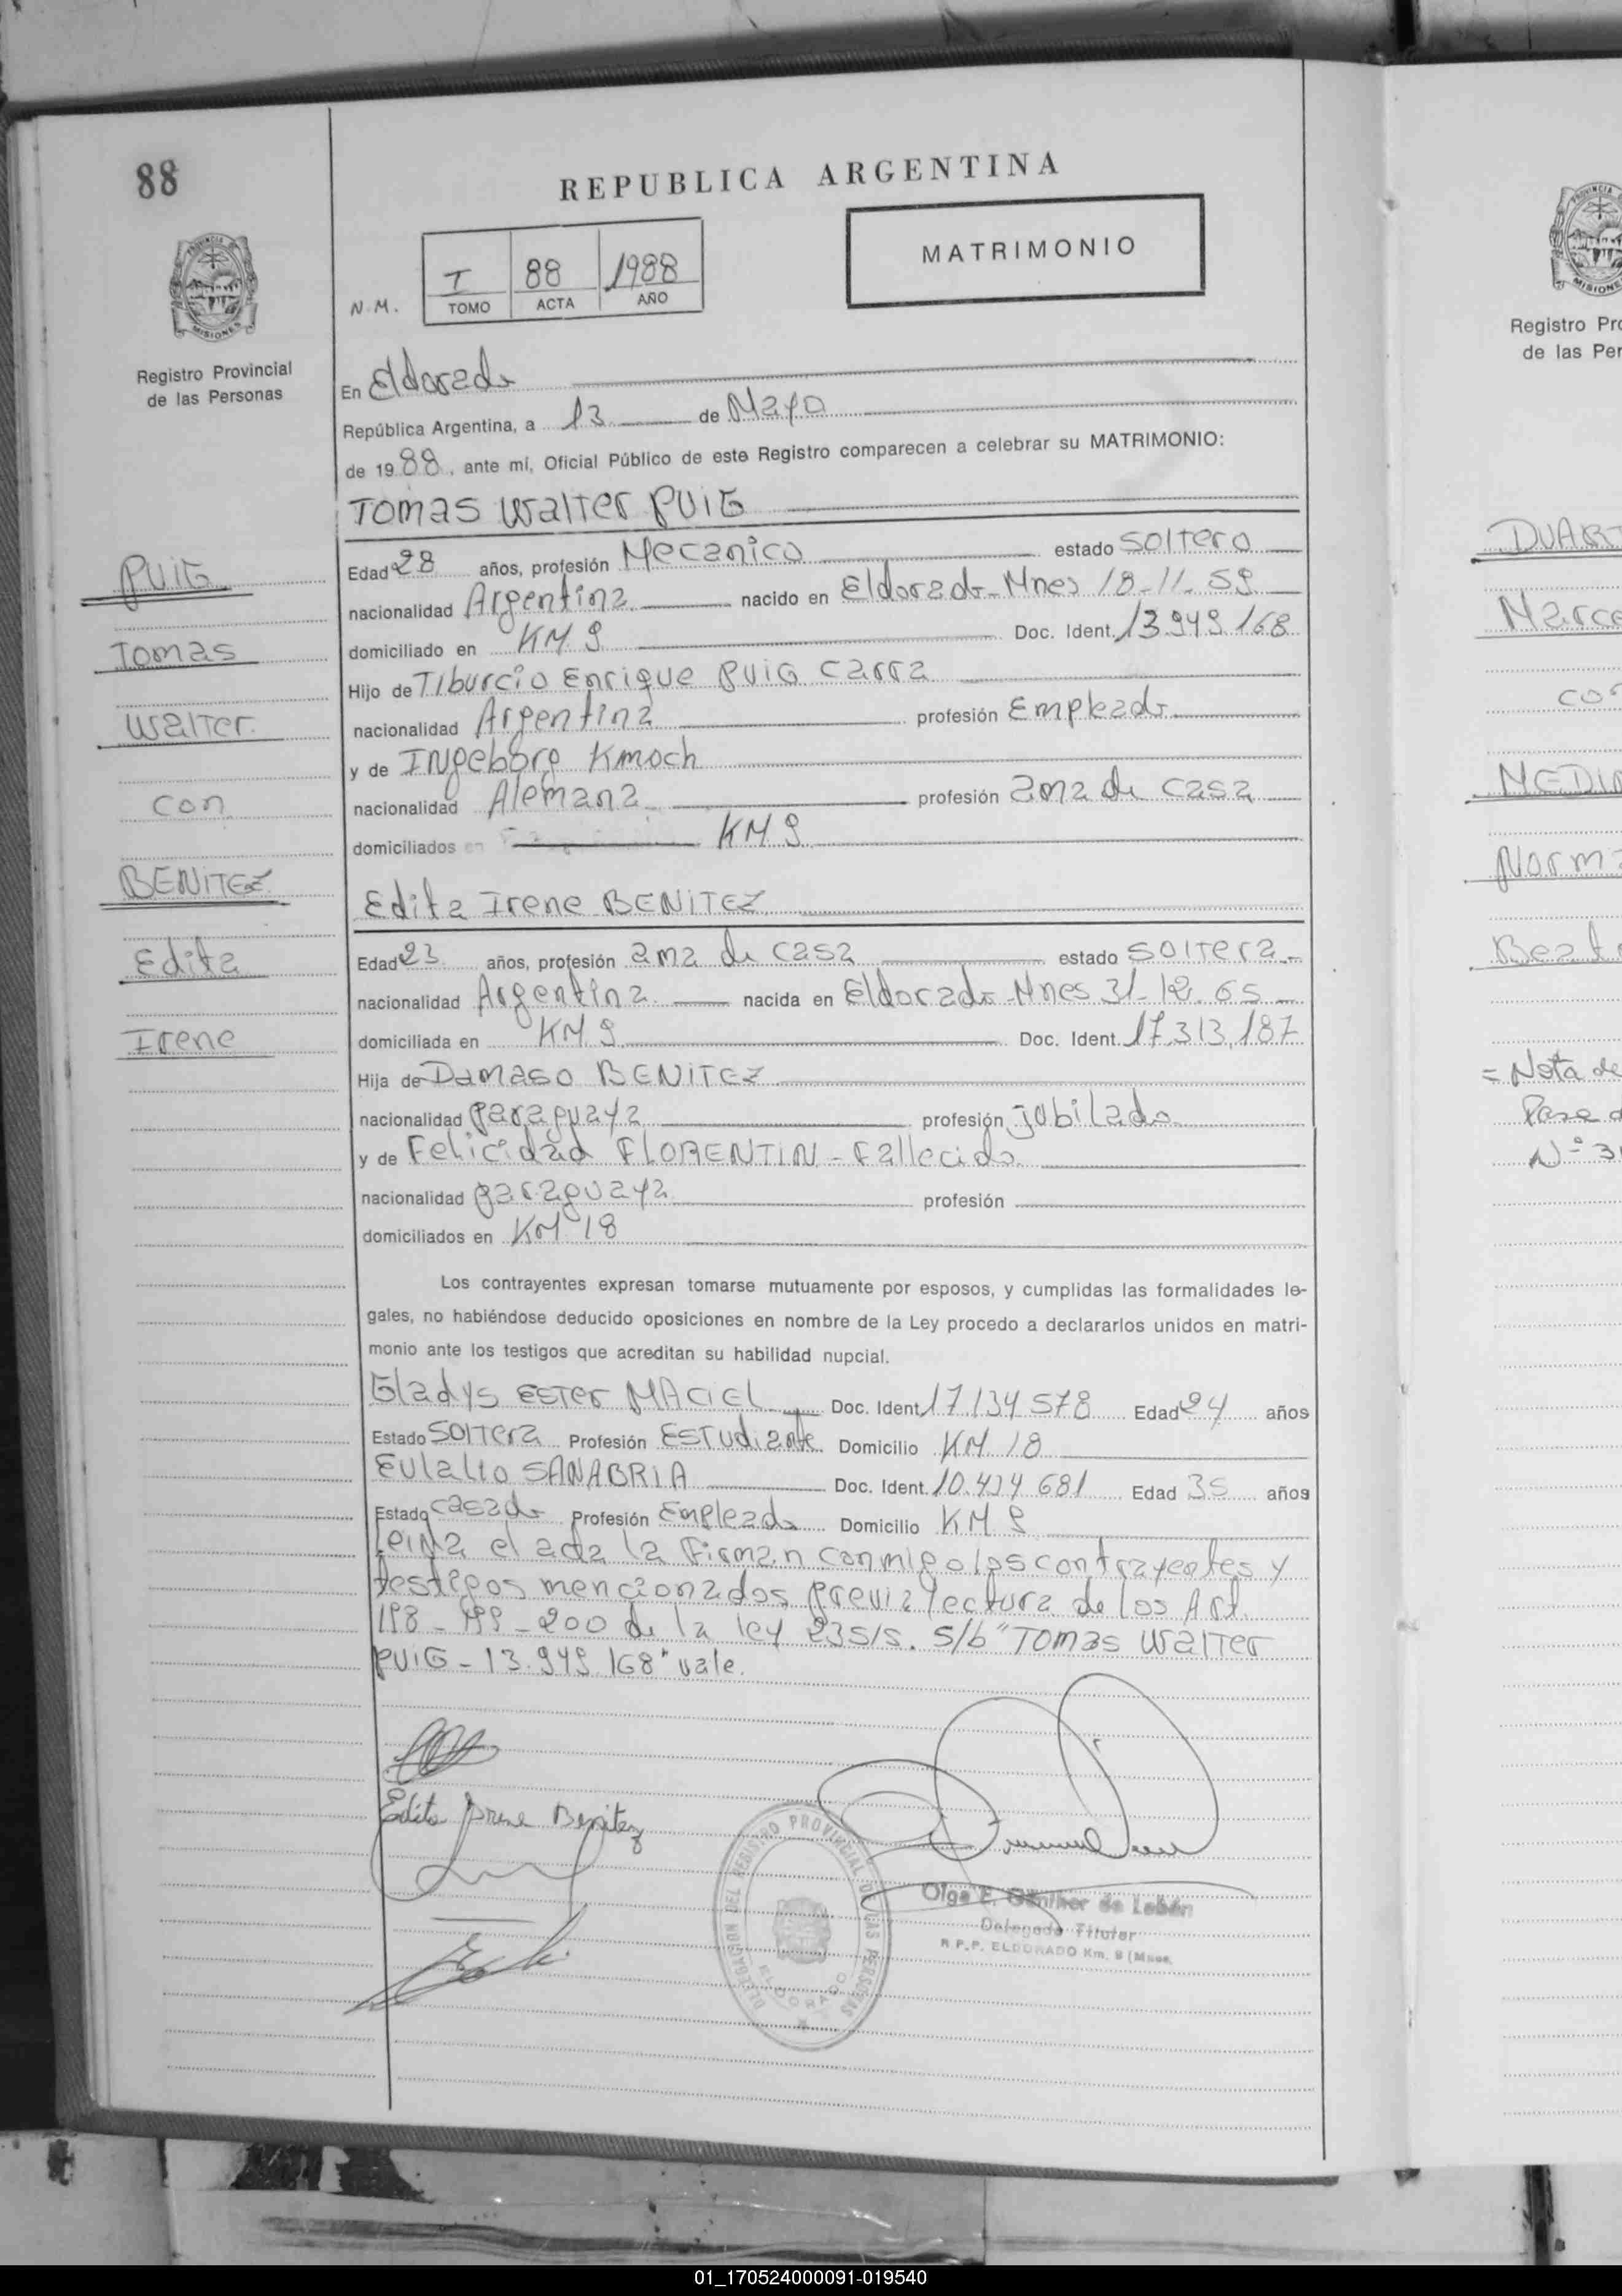 88
REPUBLICA ARGENTINA
MATRIMONIO
N.M.
I 88 1988
TOMO ACTA AÑO
PROVINCIA DE
MISIONES
Registro Provincial
de las Personas
En Eldorado
República Argentina, a 13 de Mayo
de 1988, ante mí, Oficial Público de este Registro comparecen a celebrar su MATRIMONIO:
Tomas Walter PUiG
Edad 28 años, profesión Mecanico estado soltero
nacionalidad Argentina nacido en Eldorado-Mnes 18-11-59
domiciliado en KM 9 Doc. Ident. 13.949.168
Hijo de Tiburcio Enrique PUiG Carra
nacionalidad Argentina profesión Empleado
y de Ingeborg Kmoch
nacionalidad Alemana profesión ama de casa
domiciliados en KM 9
Edita Irene BENiTEZ
Edad 23 años, profesión ama de casa estado soltera
nacionalidad Argentina nacida en Eldorado-Mnes 31-12-65
domiciliada en KM 9 Doc. Ident. 17.313.187
Hija de Damaso BENiTEZ
nacionalidad paraguaya profesión jubilado
y de Felicidad FLORENTIN - Fallecido
nacionalidad paraguaya profesión
domiciliados en KM 18
Los contrayentes expresan tomarse mutuamente por esposos, y cumplidas las formalidades le-
gales, no habiéndose deducido oposiciones en nombre de la Ley procedo a declararlos unidos en matri-
monio ante los testigos que acreditan su habilidad nupcial.
Gladys Ester MACIEL Doc. Ident. 17134578 Edad 24 años
Estado soltera Profesión Estudiante Domicilio KM 18
Eulalio SANABRIA Doc. Ident. 10.434 681 Edad 35 años
Estado casado Profesión Empleado Domicilio KM 9
Leida el acta la firman conmigo los contrayentes y
testigos mencionados previa lectura de los Art.
198-199-200 de la ley 23515. S/b "Tomas Walter
PUiG - 13.949.168" vale.
Edita Irene Benitez
DELEGACION DEL REGISTRO PROVINCIAL DE LAS PERSONAS
ELDORADO
Olga E. Günther de Lobén
Delegada Titular
R.P.P. ELDORADO Km. 9 (Mnes.
PUiG
Tomas
Walter
con
BENiTEZ
Edita
Irene
MISIONES
Registro Pro
de las Per
DUART
Marce
con
MEDIN
Norm
Beat
= Nota de
Pase d
Nº 3
01_170524000091-019540